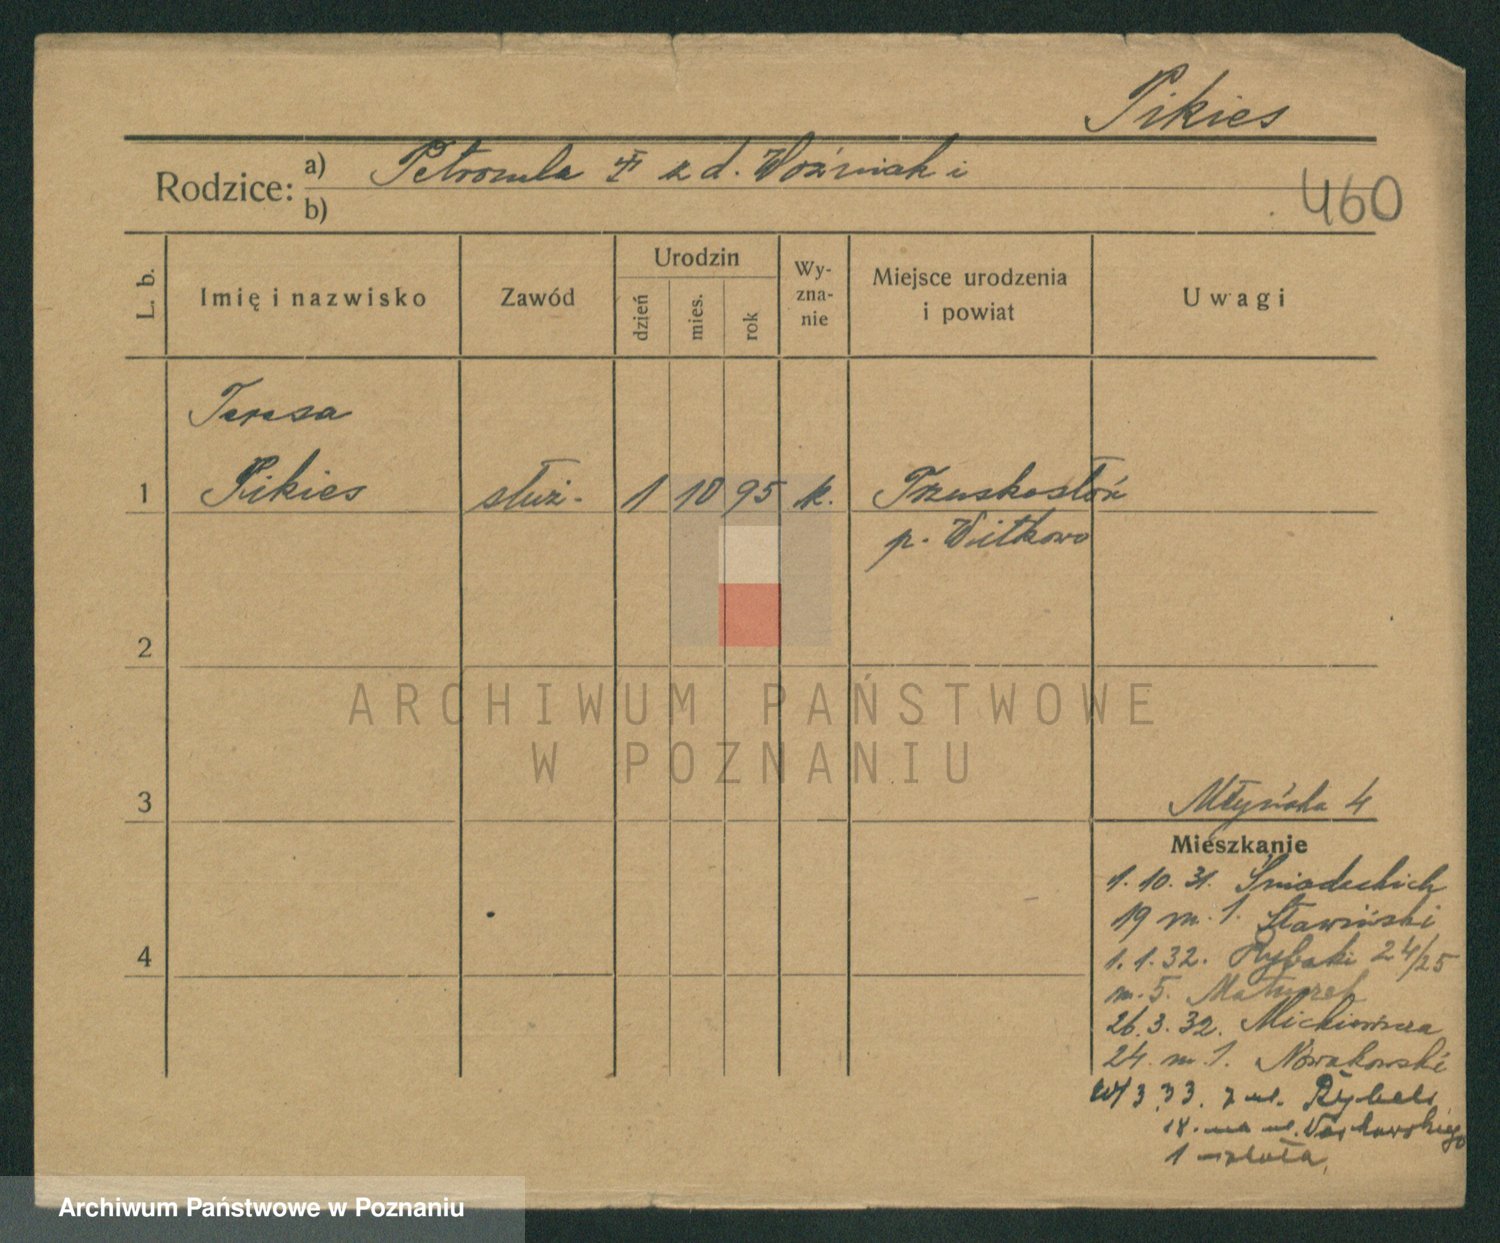 Pikies
Rodzice: a) Petronela z d. Woźniak i
b)
460
L. b.
Imię i nazwisko
Zawód
Urodzin
dzień
mies.
rok
Wy-
zna-
nie
Miejsce urodzenia
i powiat
Uwagi
Teresa
1 Pikies służ. 1 10 95 k. Trzuskołoń
p. Witkowo
2
ARCHIWUM PAŃSTWOWE
W POZNANIU
3
Młyńska 4
Mieszkanie
1.10.31. Śniadeckich
19 m. 1. Sławiński
1.1.32. Rybaki 24/25
4
m. 5. Matuszek
26.3.32. Mickiewicza
24. m. 1. Nowakowski
3 33. z ul. Rybaki
18. na ul.
1
Archiwum Państwowe w Poznaniu